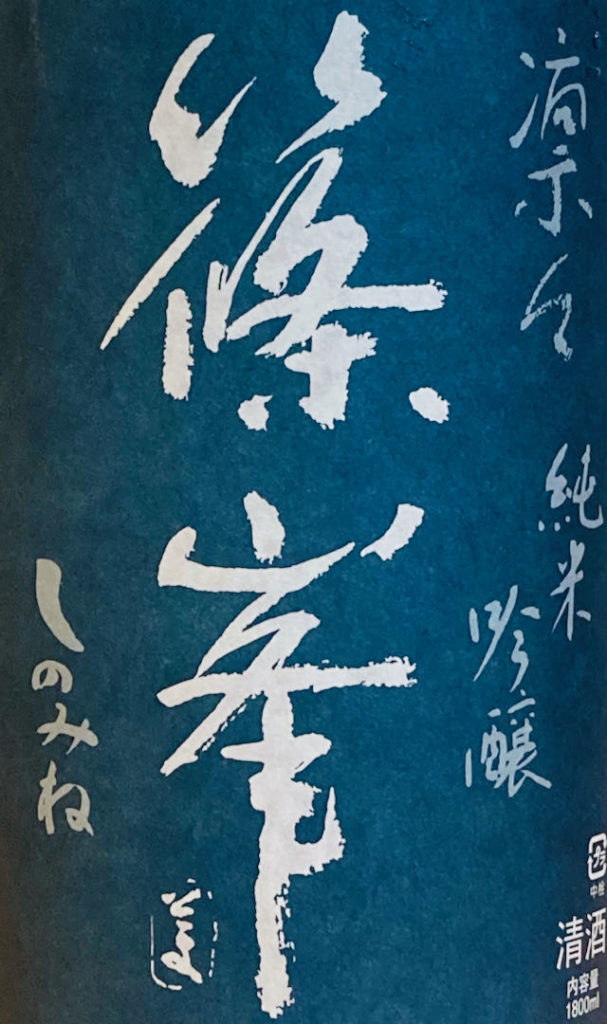 凛々
純米
吟醸
篠峯
しのみね
プラ
中栓
清酒
内容量
1800ml